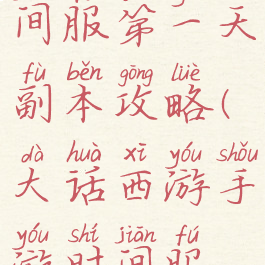 间服第一天
fù běn gōng lüè
副本攻略(
dà huà xī yóu shǒu
大话西游手
yóu shí jiān fú
游时间服